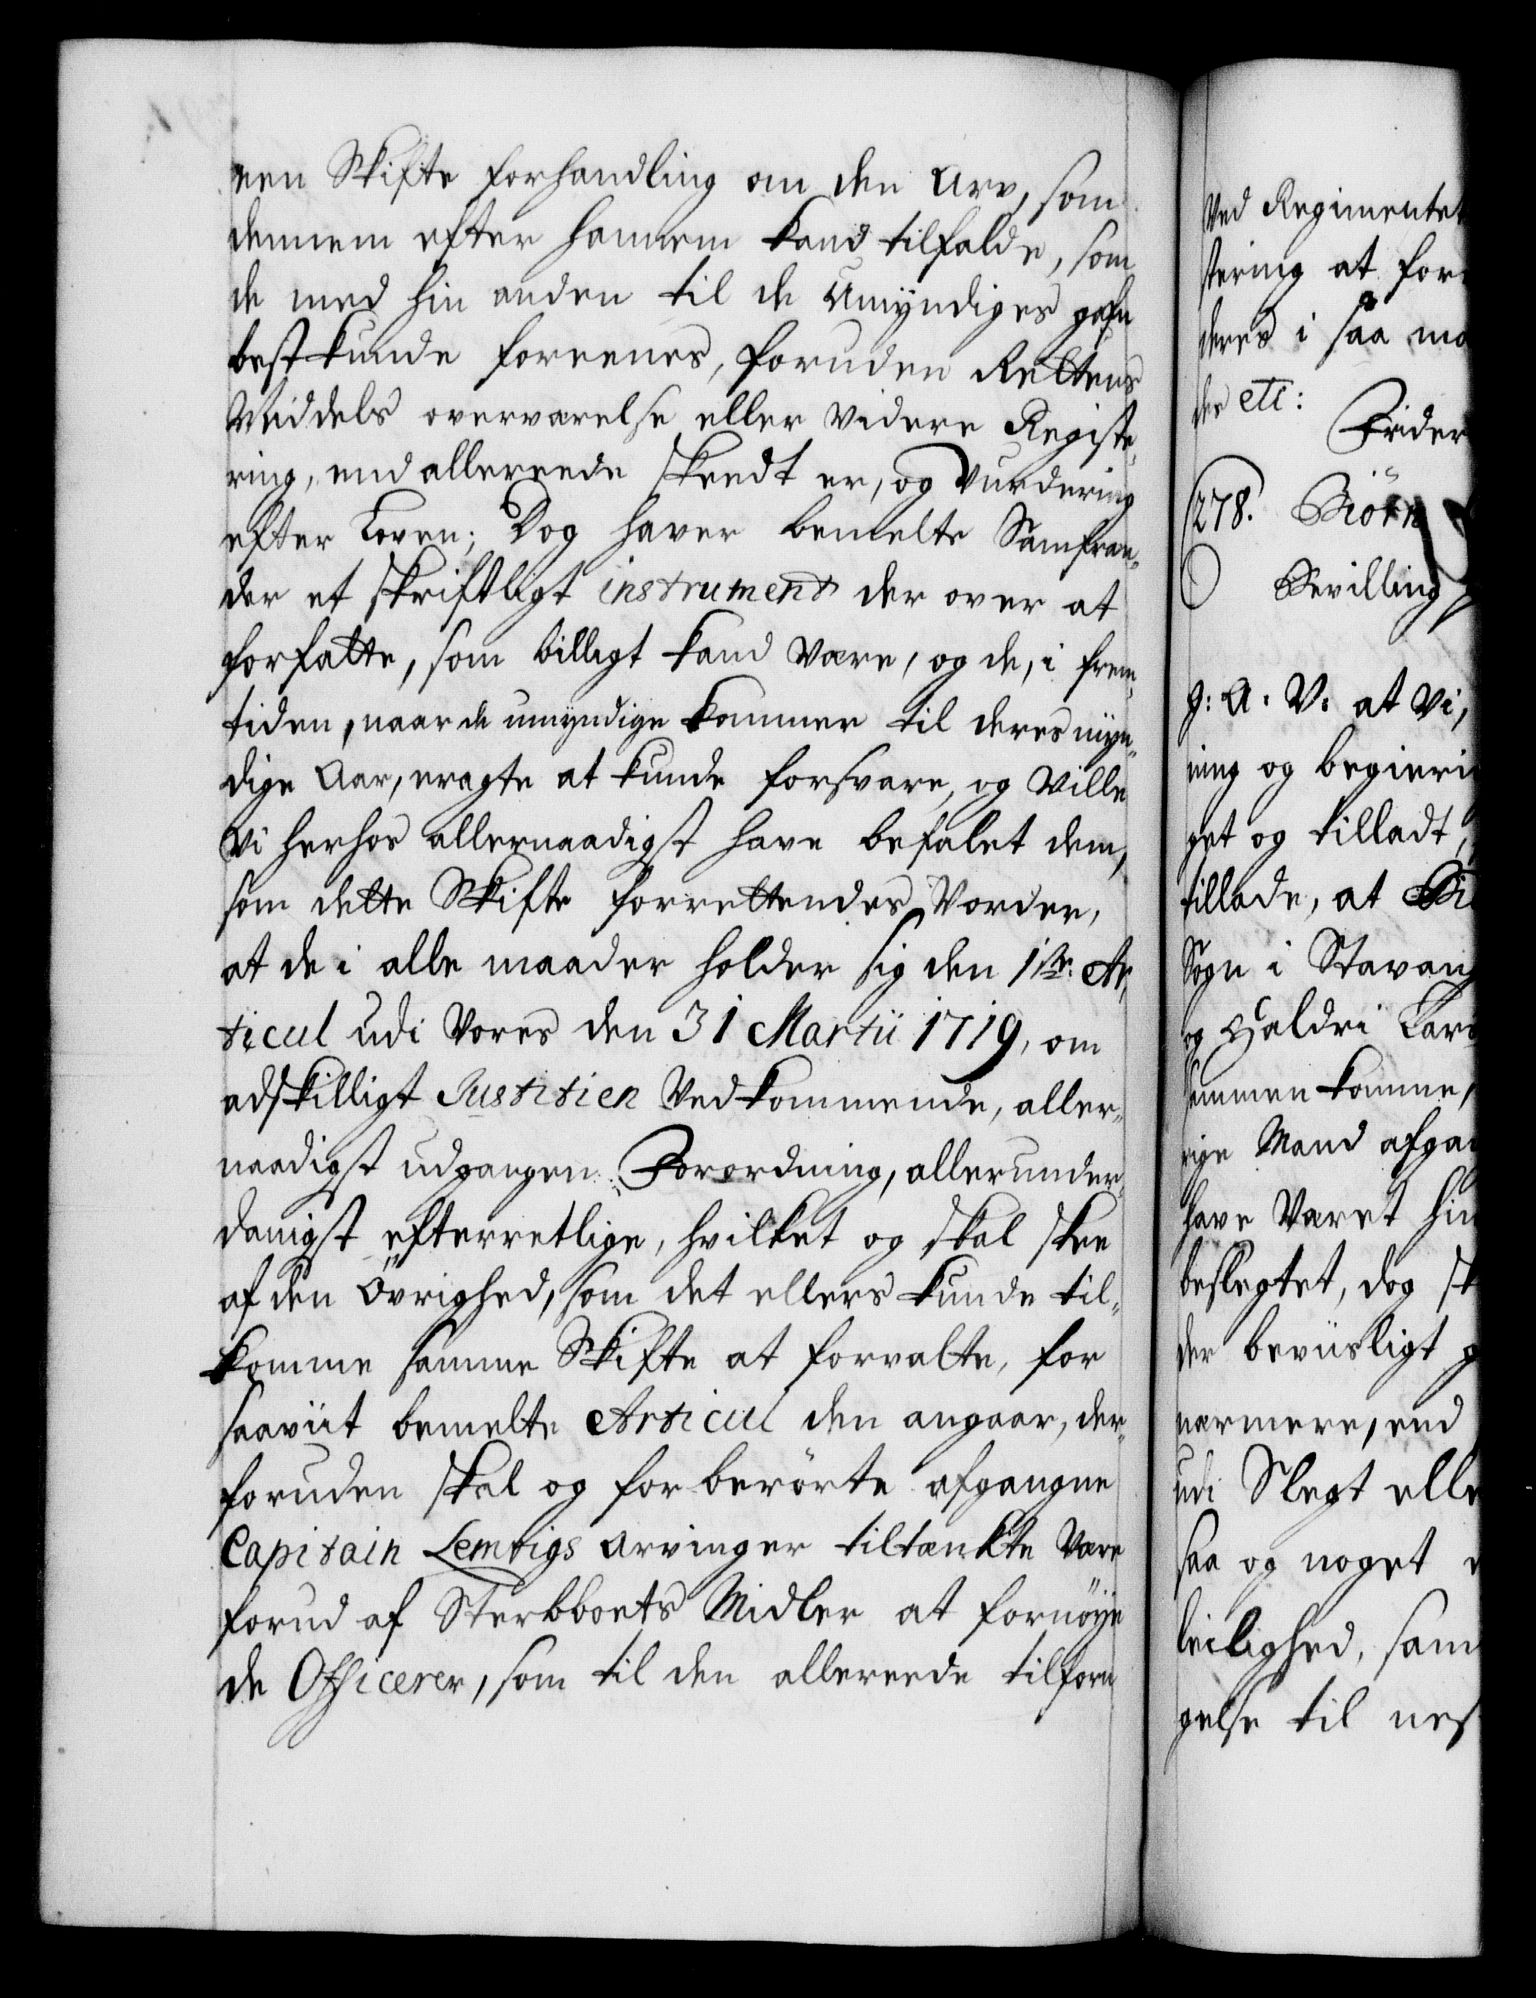 een Skifte forhandling om den Arv, som
dennem efter hannem kand tilfalde, som
de med hin anden til de Umyndiges gafn
best kunde foreenes, foruden Rettens
Middels overværelse eller Videre Registe-
ring, end allereede skeedt er, og Vurdering
efter Loven; Dog haver bemelte Samfræn-
der et skriftligt instrument der over at
forfatte, som billigt kand være, og de, i frem-
tiden, naar de umyndige kommer til deres myn-
dige Aar, eragte at kunde forsvare, og Ville
Vi herhos allernaadigst have befalet dem,
som dette Skifte forrettendes Vorder,
at de i alle maader holder sig den 1ste Ar-
ticul udi Vores den 31 Martii 1719, om
adskilligt Justitien Vedkommende, aller-
naadigst udgangen Forordning, allerunder-
danigst efterretlige, hvilket og skal skee
af den Övrighed, som det ellers kunde til-
komme samme Skifte at forvalte, for
saaviit bemelte Articul den angaar, der-
foruden skal og forberörte afgangne
Capitain Lemtigs arvinger tiltænkte Være
forud af Sterbboets Midler at fornöye
de Officerer, som til den allereede tilforn
Ved Regimentet
stering at for
deres i saa ma
des etc:
Frider
278. Biörn
Bevilling
g: A. V. at Vi,
ning og begieri
get og tilladt,
tillade, at Bi
Sogn i Stavang
og Haldri Lars
sammen komme,
rige Mand afga
have Været hin
beslegtet, dog sk
der beviisligt g
nærmere, end
udi Slegt elle
saa og noget
leilighed, sam
gelse til nes